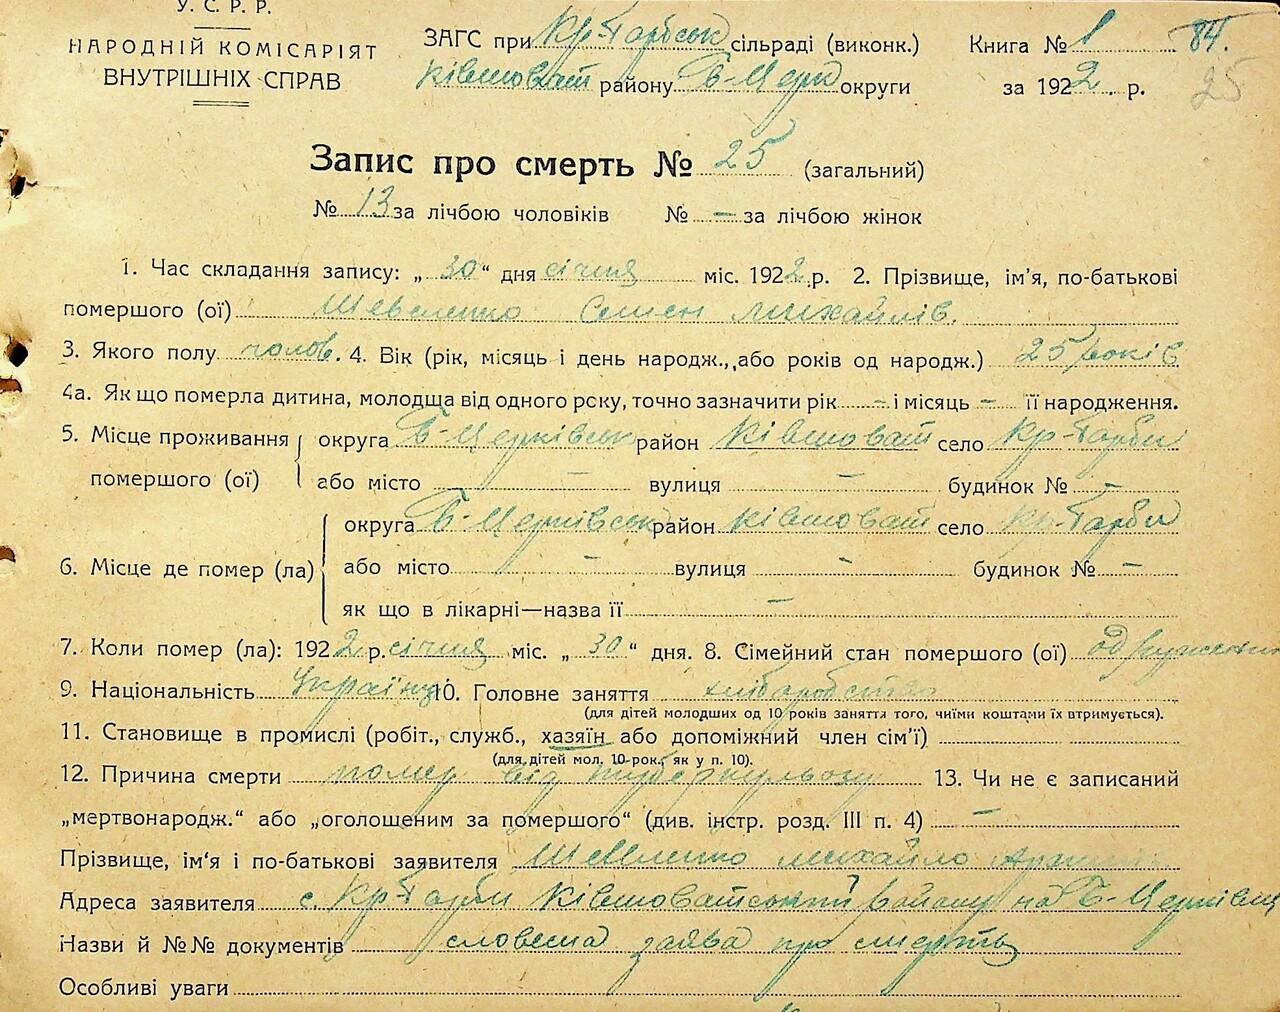 У. С. Р. Р.
НАРОДНІЙ КОМІСАРІЯТ
ВНУТРІШНІХ СПРАВ
ЗАГС при Кр-Гарбськ сільраді (виконк.)
Ківшоват району Б-Церк округи
Книга № 1
84.
за 1922 р.
25
Запис про смерть № 25 (загальний)
№ 13 за лічбою чоловіків № – за лічбою жінок
1. Час складання запису: „ 30 “ дня січня міс. 1922 р. 2. Прізвище, ім’я, по-батькові
помершого (ої) Шевченко Семен Михайлів.
3. Якого полу чолов. 4. Вік (рік, місяць і день народж., або років од народж.) 25 років
4а. Як що померла дитина, молодща від одного року, точно зазначити рік – і місяць – її народження.
5. Місце проживання округа Б-Церківськ район Ківшоват село Кр-Гарби
помершого (ої) або місто – вулиця – будинок № –
округа Б-Церківськ район Ківшоват село Кр-Гарби
6. Місце де помер (ла) або місто – вулиця – будинок № –
як що в лікарні—назва її –
7. Коли помер (ла): 1922 р. січня міс. „ 30 “ дня. 8. Сімейний стан помершого (ої)
9. Національність Українц 10. Головне заняття хліборобство
(для дітей молодших од 10 років заняття того, чиїми коштами їх втримується).
11. Становище в промислі (робіт., служб., хазяїн або допоміжний член сім’ї)
(для дітей мол. 10 рок., як у п. 10).
12. Причина смерти помер від туберкульозу 13. Чи не є записаний
„мертвонародж.“ або „оголошеним за помершого“ (див. інстр. розд. III п. 4) –
Прізвище, ім‘я і по-батькові заявителя Шевченко Михайло
Адреса заявителя с. Кр-Гарби Ківшоватський району на Б-Церківщ
Назви й №№ документів словесна заява про смерть
Особливі уваги